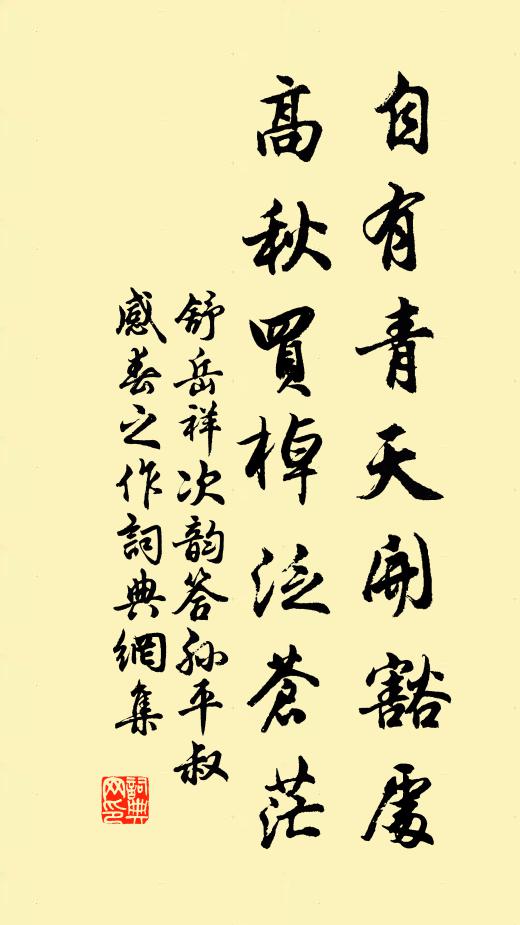 自有青天開豁處
高秋買棹泛蒼茫
舒岳祥次韵答孙平叔
感春之作詞典網集
詞典网印